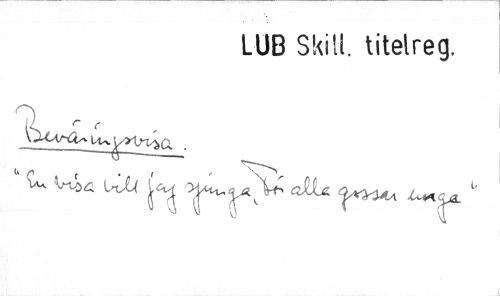 LUB Skill. titelreg.
Beväringsvisa.
"En visa vill jag sjunga, För alla gossar unga"